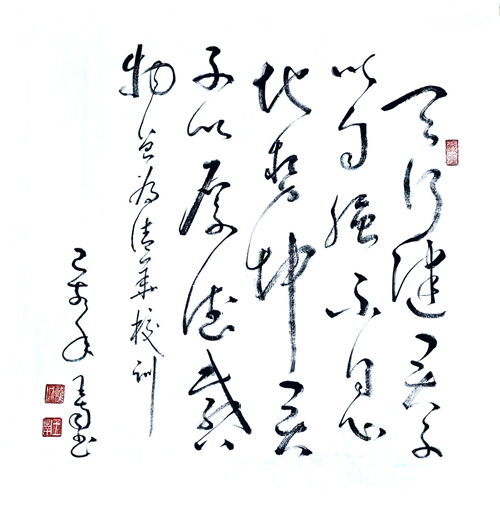 天行健君子
以自强不息
地势坤君
子以厚德载
物 为清華校训
己亥年 王 书